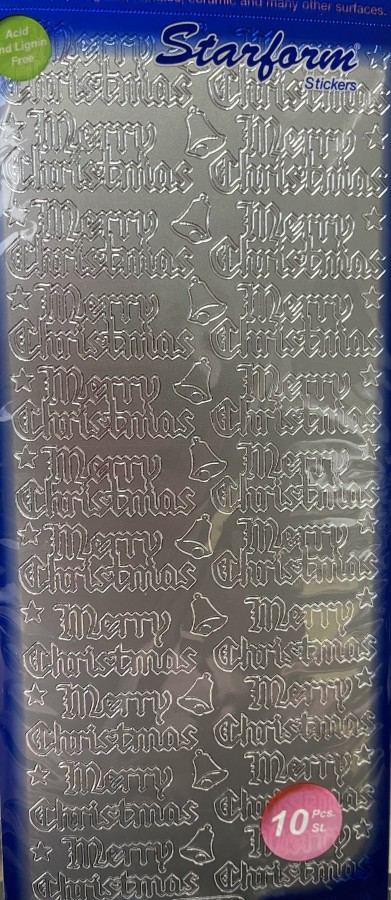 ceramic and many other surfaces.
Acid
and Lignin
Free
Starform®
Stickers
Merry
Christmas Christmas
Merry Merry
Christmas Christmas
Merry Merry
Christmas Christmas
Merry Merry
Christmas Christmas
Merry Merry
Christmas Christmas
Merry Merry
Christmas Christmas
Merry Merry
Christmas Christmas
Merry Merry
Christmas Christmas
Merry Merry
Christmas Christmas
Merry Merry
Christmas
10 Pcs.
St.
Merry
Christmas Christmas